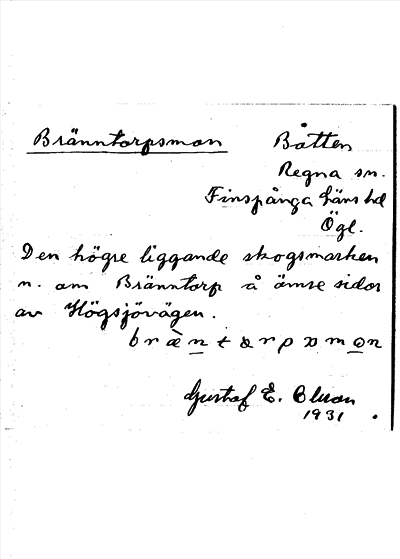 Bränntorpsmon Båtten
Regna sn.
Finspånga läns hd
Ögl.
Den högre liggande skogsmarken
n. om Bränntorp å ömse sidor
av Högsjövägen.
Gustaf E.
1931